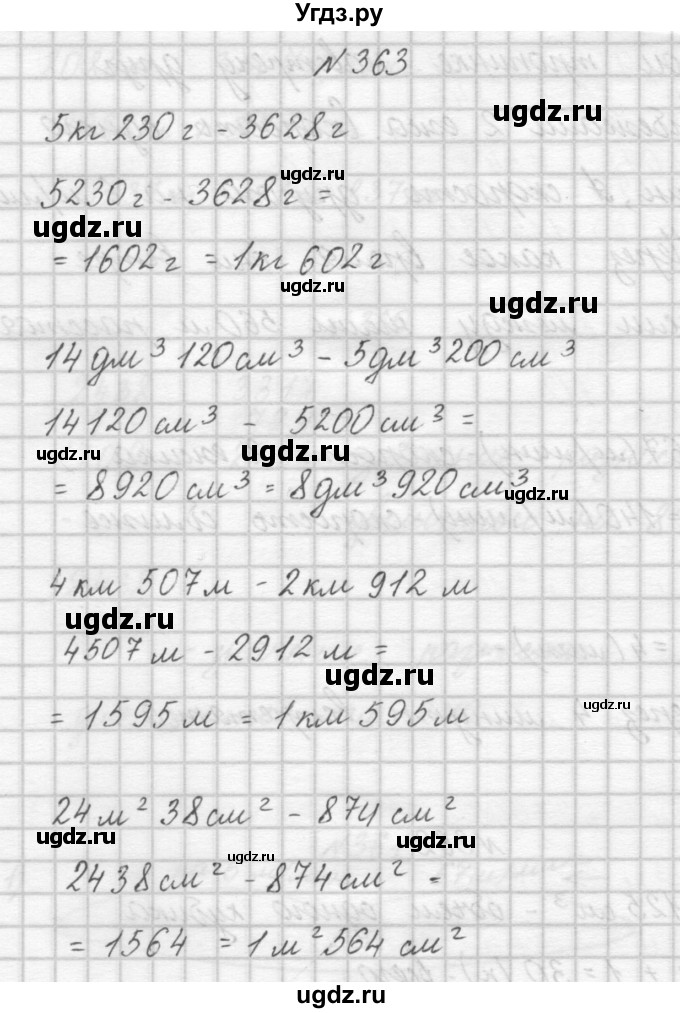 Угдз.ру
№363
ugdz.ru
5кг 230г - 3628г
ugdz.ru
5230г - 3628г =
ugdz.ru
= 1602г = 1кг 602г
ugdz.ru
ugdz.ru
14дм³ 120см³ - 5дм³ 200см³
14120см³ - 5200см³ =
ugdz.ru
ugdz.ru
= 8920см³ = 8дм³ 920см³
ugdz.ru
4км 507м - 2км 912м
ugdz.ru
4507м - 2912м =
ugdz.ru
= 1595м = 1км 595м
ugdz.ru
24м² 38см² - 874см²
ugdz.ru
ugdz.ru
2438см² - 874см² =
= 1564 = 1м² 564см²
ugdz.ru
ugdz.ru